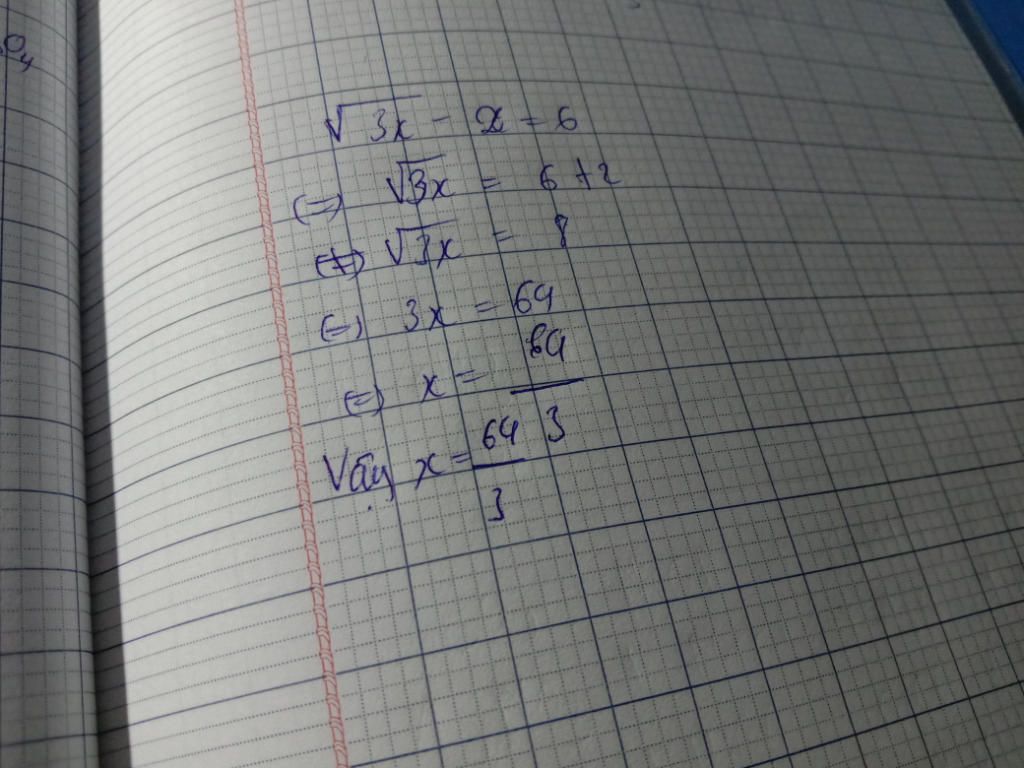 O₄
√3x - 2 = 6
(=) √3x = 6 + 2
(=) √3x = 8
(=) 3x = 64
(=) x = 64/3
Vậy x = 64/3